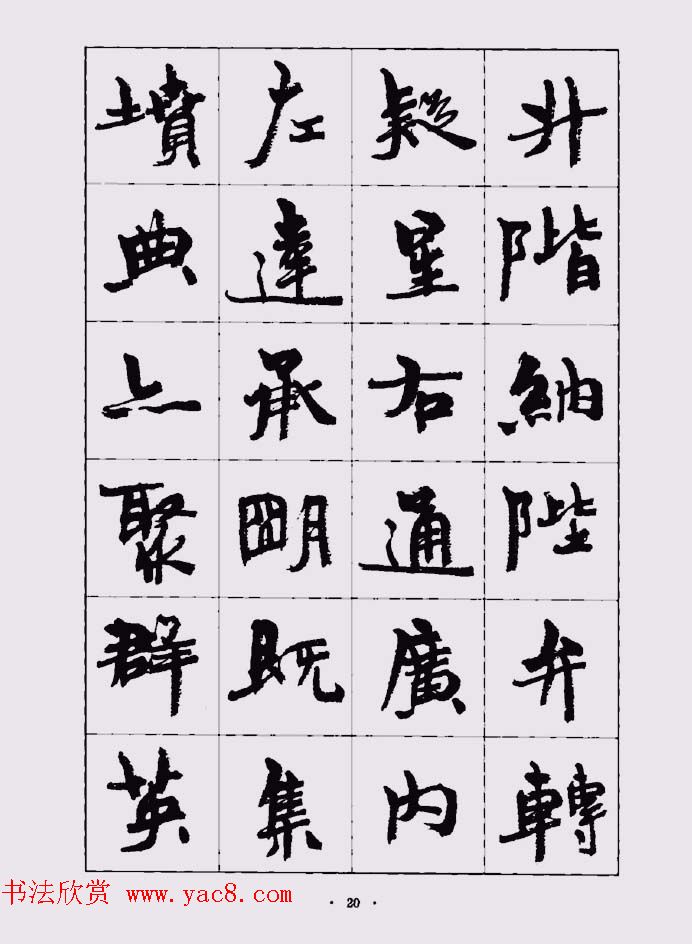 升階納陛弁轉
疑星右通廣内
左達承明既集
墳典亦聚群英
书法欣赏 www.yac8.com
· 20 ·